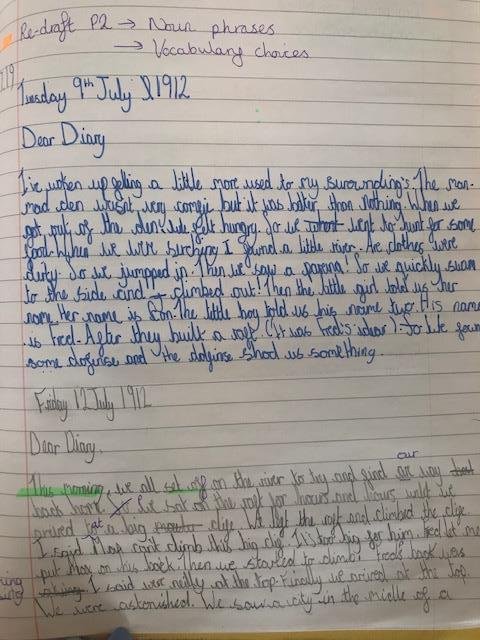 Re-draft P2 → Noun phrases
→ Vocabulary choices
Tuesday 9th July 1912
Dear Diary
I've woken up geling a little more used to my surowndings. The man-
mad den wasn't very comfie but it was bater than nothing. When we
got out of the den we felt hungry. So we went to hunt for some
food. When we were serching I found a little river. He clothes were
dirty. So we jumped in. Then we saw a parana! So we quickly swam
to the side and climbed out! Then the little girl told us her
name. Her name is Con. The little boy told us his name two. His name
is Fred. After they built a raft (It was Fred's idear). So we
some and the shod us something.
Friday 12 July 1912
Dear Diary,
our
This morning, we all set off on the river to try and find way
back home. We sat on the raft for hours and hours until we
arived at a big clife. We left the raft and climbed the clife.
I said Max can't climb this big clif. It is too big for him. Fred let me
put Max on his back. Then we started to climb. Freds back was
I said wer neily at the top. Finaly we arived at the top.
We were astonished. We saw a city in the middle of a